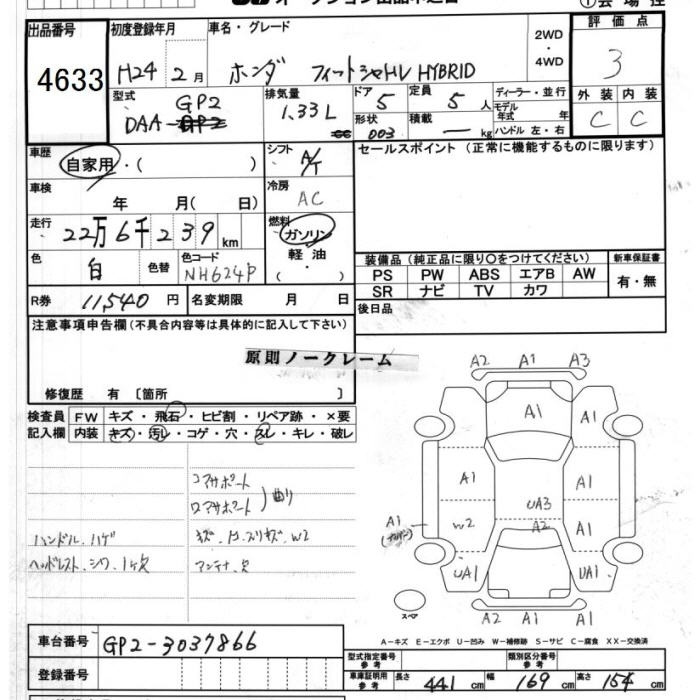 出品番号
4633
初度登録年月
H24 2月
車名・グレード
ホンダ フィットシャトルHV HYBRID
2WD
・
4WD
評価点
3
外装 内装
C C
型式
GP2
DAA-GP2
排気量
1.33L
cc
ドア
5
形状
003
定員
5 人
積載
— kg
ディーラー・並行
モデル
年式 年
ハンドル 左・右
車歴
自家用・( )
シフト
A/T
セールスポイント (正常に機能するものに限ります)
車検
年 月( 日)
冷房
AC
走行
22万6千239km
燃料
ガソリン
軽油
・
( )
色
白
色替
色コード
NH624P
装備品 (純正品に限り〇をつけてください)
PS PW ABS エアB AW
SR ナビ TV カワ
新車保証書
有・無
R券 11,540円 名変期限 月 日
後日品
注意事項申告欄(不具合内容等は具体的に記入して下さい)
原則ノークレーム
修復歴 有 〔箇所 〕
検査員
記入欄
FW キズ・飛石・ヒビ割・リペア跡・×要
内装 キズ・汚レ・コゲ・穴・スレ・キレ・破レ
コアサポート
ロアサポート
曲り
ハンドル.ハゲ
ヘッドレスト.シワ.1ヶ欠
アンテナ.欠
A2 A1 A3
A1 A1
A1 A1
UA3
A1
W2 A2 A1
UA1 UA1
A2 A1 A1
スペア
A-キズ E-エクボ U-凹み W-補修跡 S-サビ C-腐食 XX-交換済
車台番号 GP2-3037866
登録番号
型式指定番号
参考
類別区分番号
参考
車庫証明用
参考
長さ 441 cm 幅 169 cm 高さ 154 cm